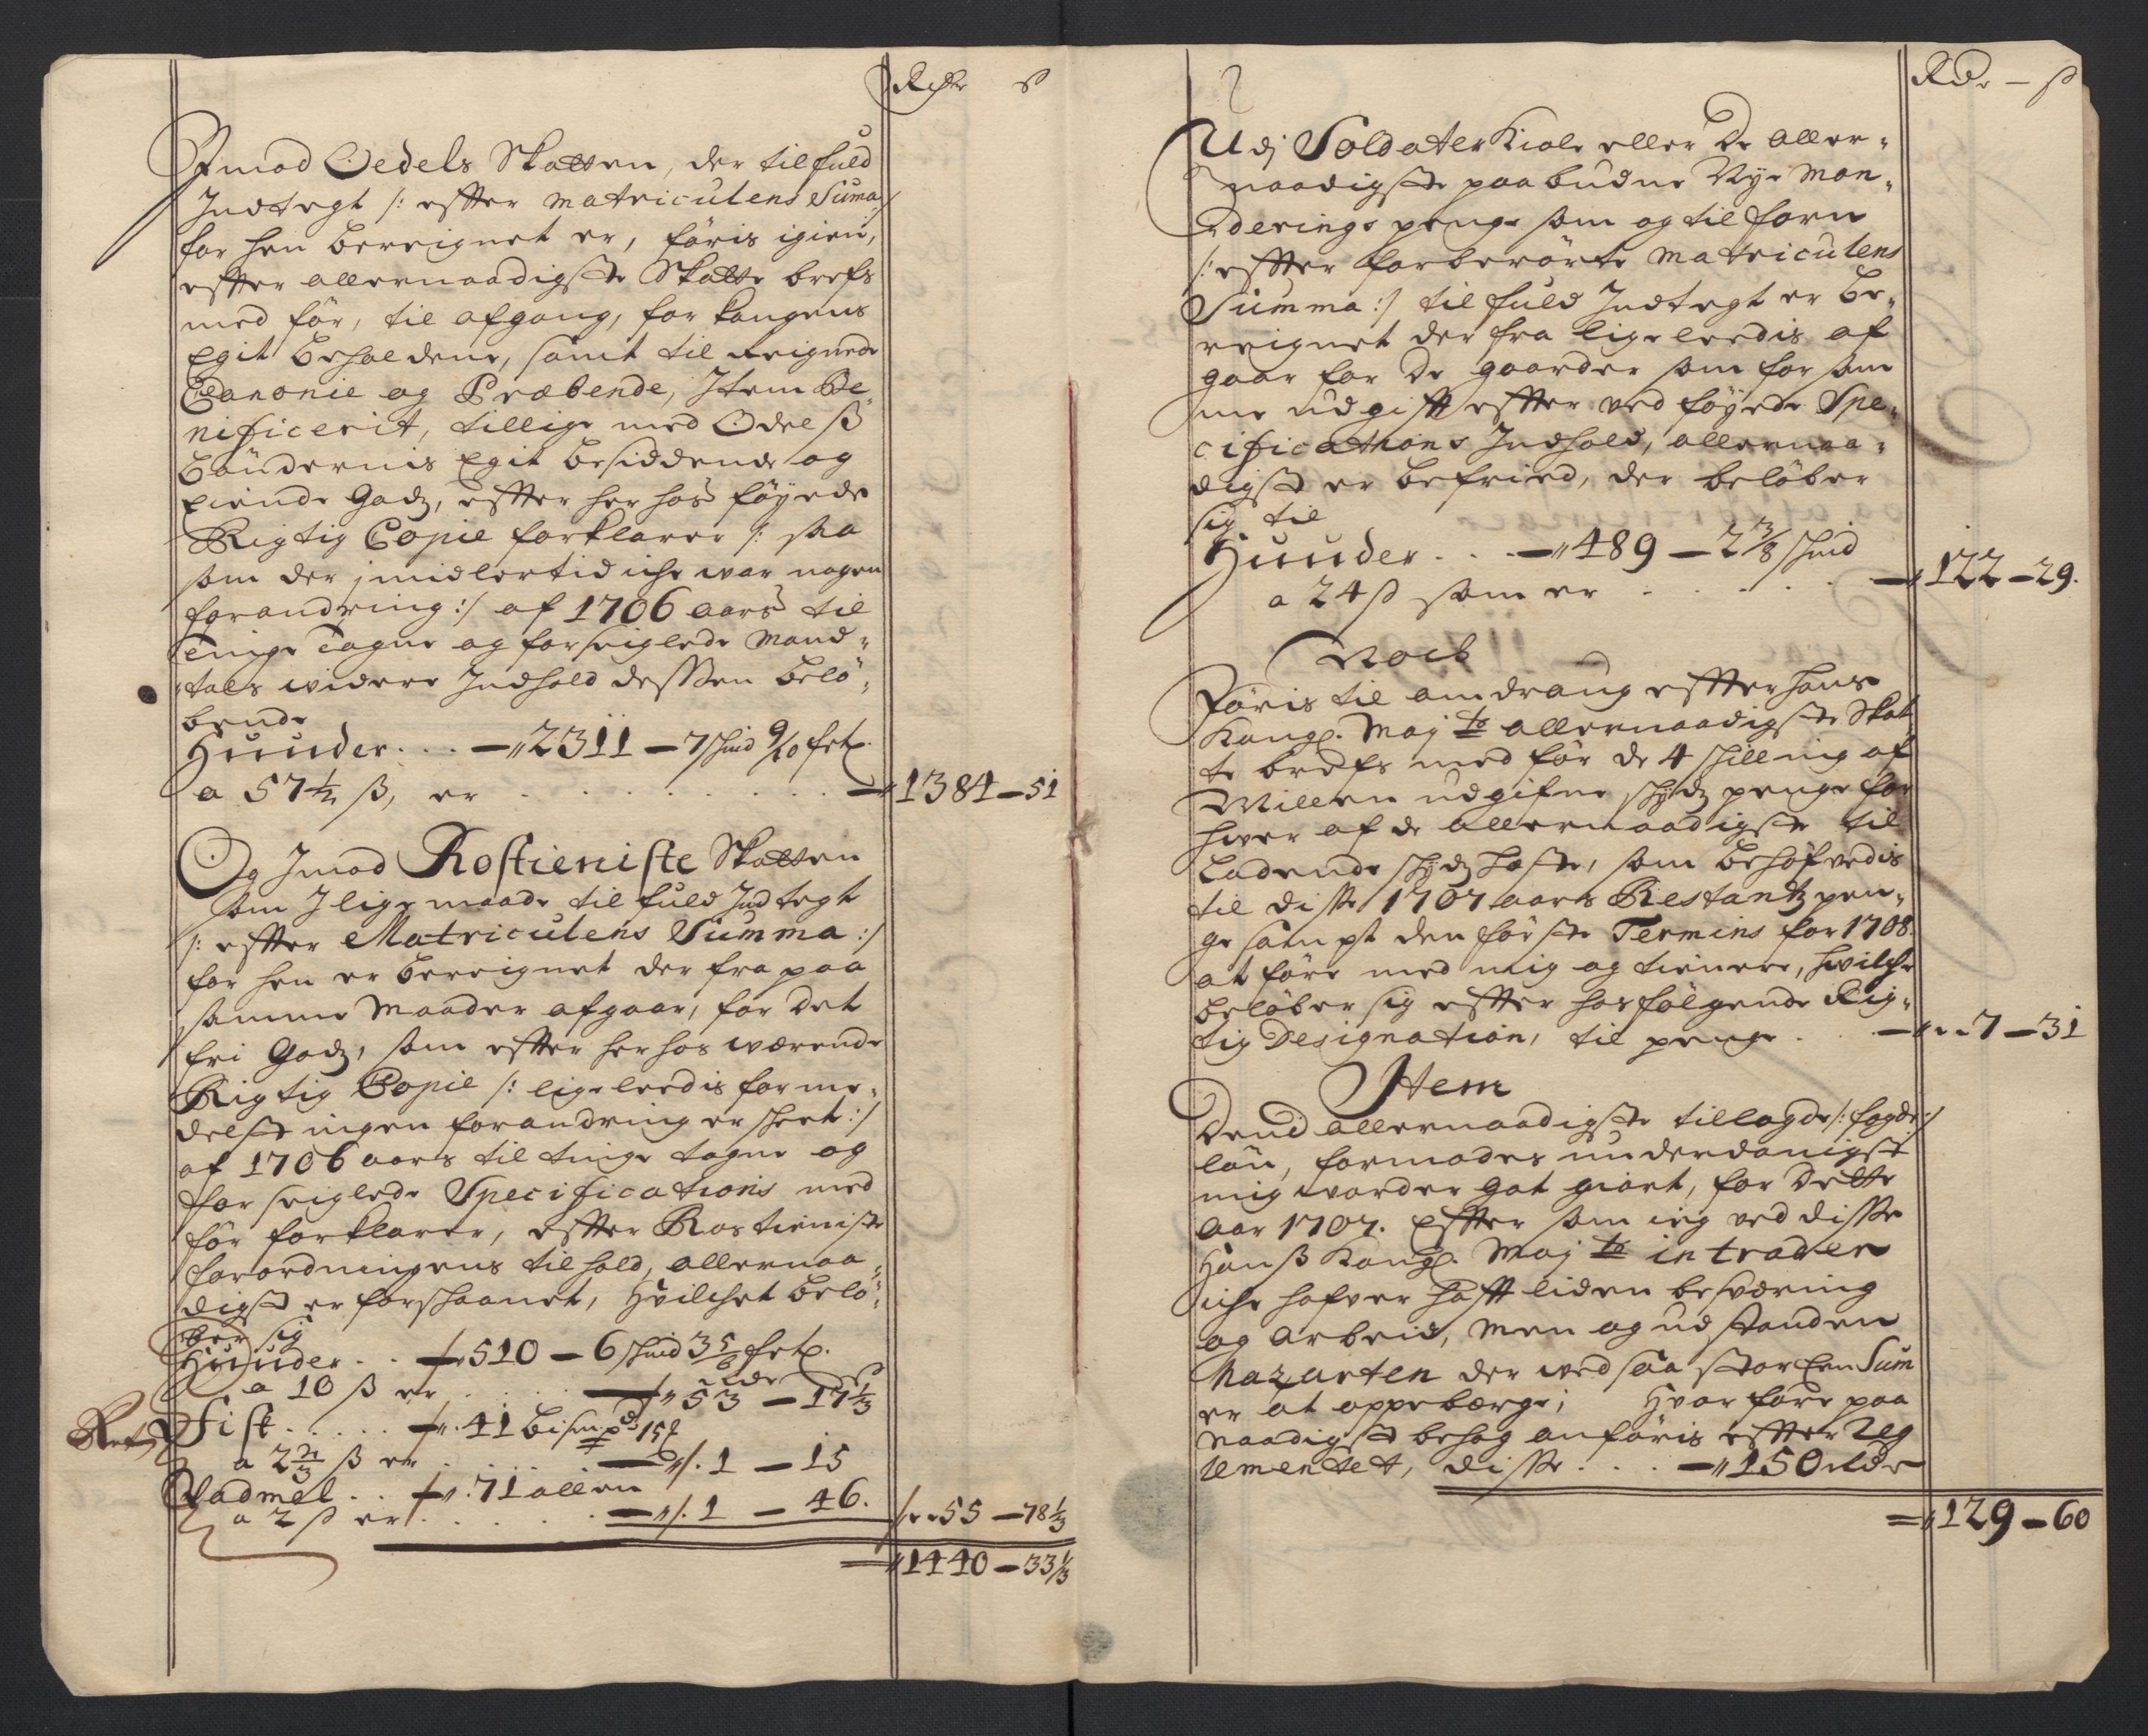 Rdr ß
Imod Oedels Skatten, der til fuld
Indtegt /: efter Matriculens Suma :/
for hen bereignet er, føris igien,
efter allernaadigste Skatte brefs
med før, til afgang, for Kongens
Egit beholdene, samt til reignede
Canonie og Præbende, Item Be¬
nificerit, tillige med Odelß
bøndernis Egit besiddende og
eiende Godz, efter her hos føyede
Rigtig Copie forklarer /: saa
som der jmidlertid iche war nogen
forandring :/ af 1706 aars til
Tinge Tagne og forseiglede mand¬
tals widere Indhold dessen belø¬
bende
Huuder . . . 2311 – 7 skind 9/10 fet.
a 57½ ß, er . . . 1384 – 51
Og Imod Rostieniste Skatten
som I lige maade til fuld Indtegt
/: efter Matriculens Summa :/
for hen er bereignet der fra paa
samme Maader afgaar, for det
fri Godz, som efter her hos wærende
Rigtig Copie /: ligeleedis forme¬
delst ingen forandring er skeet :/
af 1706 aars til tinge tagne og
forseiglede Specifications med
før forklarer, efter Rostieniste
forordningens tilhold, allernaa¬
digst er forskaanet, Hvilchet belø¬
ber sig
Huuder . . 510 – 6 skind 3 5/6 fet.
a 10 ß er . . . 53 – 17⅓
Fisk . . . . . 41 bismpd 15
a 2 2/3 ß er . . . 1 – 15
Wadmel . . 71 allen
a 2 ß er . . . . 1 – 46. 55 – 78⅓
1440 – 33⅓
Rdr – ß
Udj Soldater Kiole eller De aller¬
naadigste paabudne Nye Mon¬
derings penge som og tilforn
/: efter forberørte Matriculens
Summa :/ til fuld Indtegt er be¬
reignet der fra ligeleedis af
gaar for de gaarder som for sam
me udgift efter ved føyede Spe¬
cifications Indhold, allernaa¬
digst er befried, der beløber
sig til
Huuder . . . 489 – 2 3/8 skind
a 24 ß som er . . . . . 122 – 29.
Noch
Føris til andrang efter hans
Kongl. Maj:ts allernaadigste Skat
te brefs med før de 4 skilling af
Millen udgifne skydz penge for
hver af de allernaadigste til
ladende skydz Heste, som behøfvedis
til disse 1707 aars Restantz pen¬
ge sampt den første Termins for 1708.
at føre med mig og tienere, hvilche
beløber sig efter hosfølgende Rig¬
tig Designation, til penge . . 7 – 31
Item
Dend allernaadigste tillagde /: fogde :/
løn, formodes underdanigst
mig vorder got giort, for dette
Aar 1707. Efter som ieg ved disse
Hanß Kongl. Maj:ts intrader
iche hafver hafft liden besværing
og Arbeid, men og udstanden
Hazarten der ved saa stor Een Sum
er at oppebærge; Hvor fore paa
naadigst behag anføris efter Reg
lementet, disse . . . 150 Rdr
129 – 60